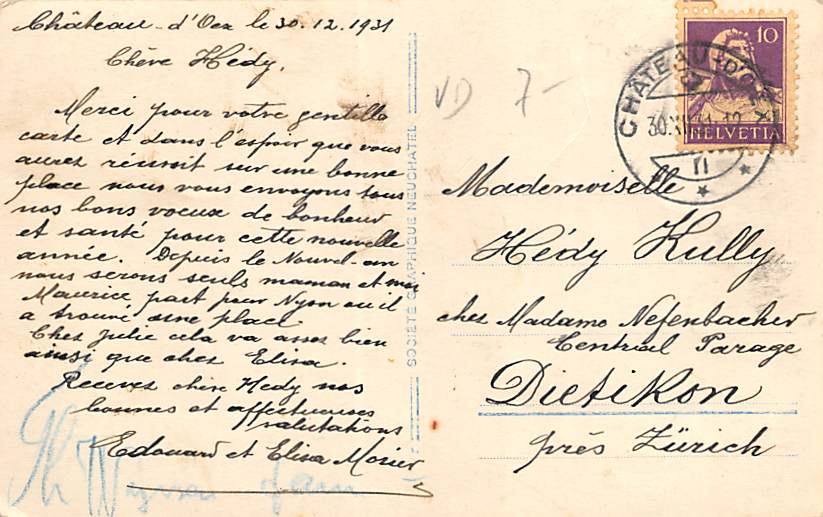 Château - d'Oex le 30.12.1931
Chère Hédy,
Merci pour votre gentille
carte et dans l'espoir que vous
aurez réussit sur une bonne
place nous vous envoyons tous
nos bons voeux de bonheur
et santé pour cette nouvelle
année. Depuis le Nouvel-an
nous serons seuls maman et moi
Maurice part pour Nyon ou il
a trouvé une place
Chez Julie cela va assez bien
ainsi que chez Elisa.
Recevez chère Hédy nos
bonnes et affectueuses
salutations
Edouard et Elisa Morier
SOCIÉTÉ GRAPHIQUE NEUCHATEL
VD 7-
CHÂTEAU-D'OEX
30.XII.31-12
10
HELVETIA
Mademoiselle
Hédy Kully
chez Madame Nefenbacher
Central Parage
Dietikon
près Zürich